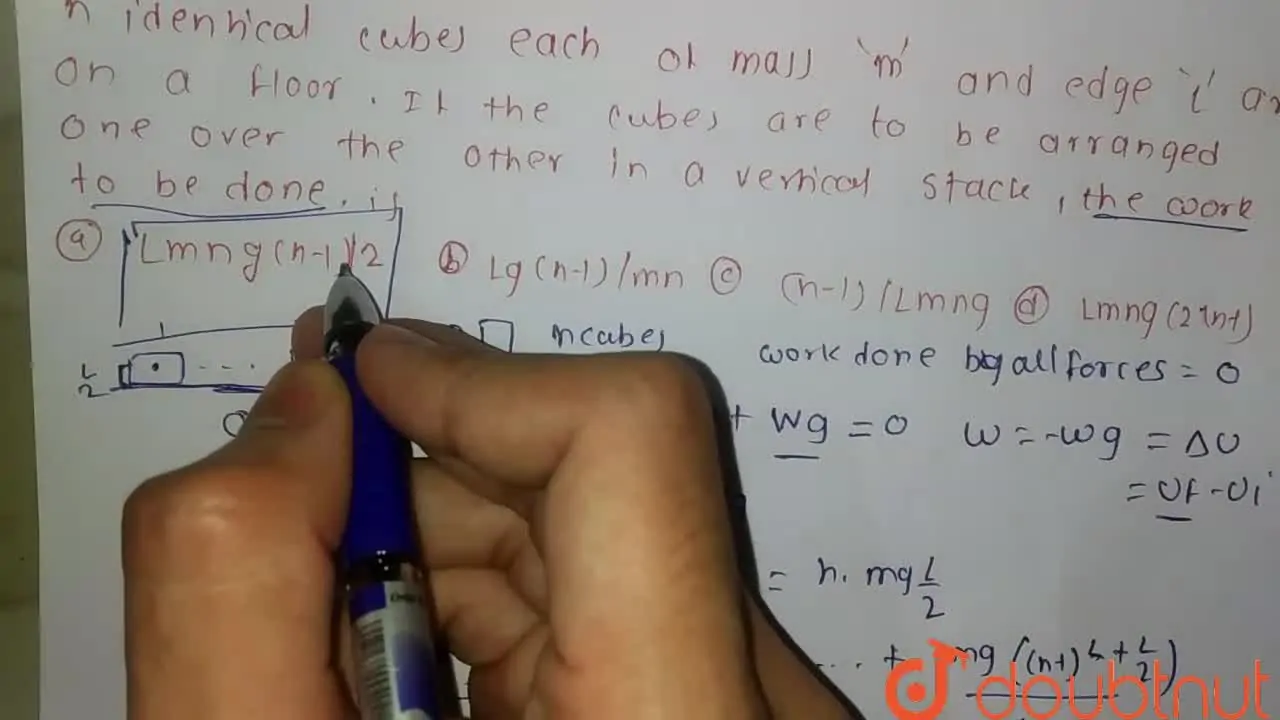 n identical cubes each of mass 'm' and edge 'L' ar
on a floor. If the cubes are to be arranged
one over the other in a vertical stack, the work
to be done. is
(a) Lmng(n-1)/2 (b) Lg(n-1)/mn (c) (n-1)/Lmng (d) Lmng(2
n cubes work done by all forces = 0
L/2
+ Wg = 0 W = -Wg = ΔU
= Uf - Ui
= n. mg L/2
... + mg((n-1)L + L/2)
doubtnut